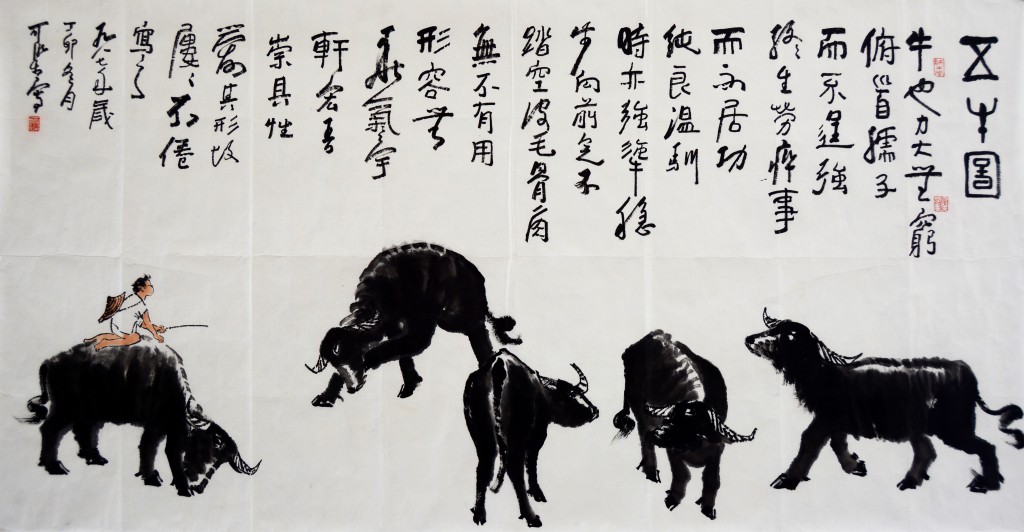 五牛圖
牛也力大無窮
俯首孺子
而不逞強
終生勞瘁事
而不居功
純良溫馴
時亦強犟穩
步向前足不
踏空皮毛骨角
無不有用
形容無
華氣宇
軒宏吾
崇其性
愛其形故
屢々不倦
寫之
九八七年歲
丁卯冬月
可染寫